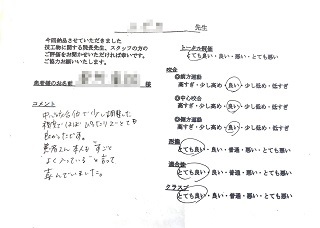 先生
今回納品させていただきました
技工物に関する院長先生、スタッフの方の
ご評価をお聞かせいただければ幸いです。
ご協力お願いいたします。
患者様のお名前 様
コメント
中心咬合位で少し調整した
程度でほぼぴったりでとても
良かったです。
患者さん本人もすごく
よく入っていると言って
喜んでいました。
トータル評価
とても良い・良い・普通・悪い・とても悪い
咬合
◎前方運動
高すぎ・少し高め・良い・少し低め・低すぎ
◎中心咬合
高すぎ・少し高め・良い・少し低め・低すぎ
◎側方運動
高すぎ・少し高め・良い・少し低め・低すぎ
形態
とても良い・良い・普通・悪い・とても悪い
適合性
とても良い・良い・普通・悪い・とても悪い
クラスプ
とても良い・良い・普通・悪い・とても悪い